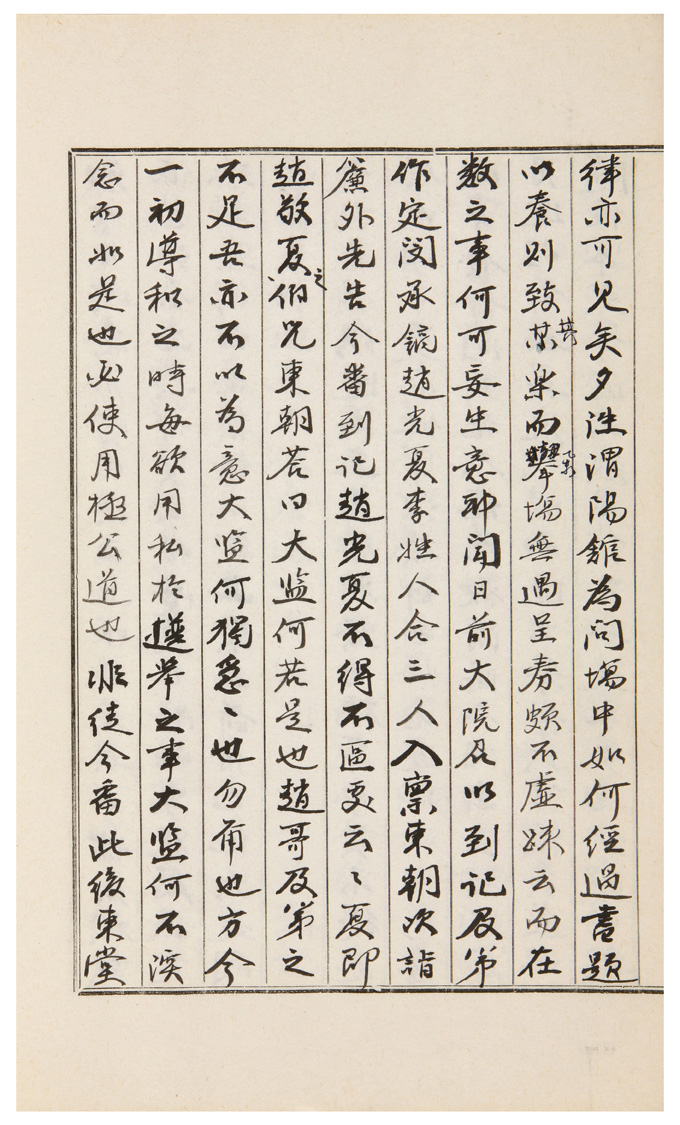 律亦可見矣夕往渭陽館為問場中如何經過書題
以養則致其樂而擧場無遇呈券頗不虛疎云而在
数之事何可妄生意耶聞日前大院君以到記及第
作定閔承鎬趙光夏李姓人合三人入稟東朝次詣
簾外先告今番到記趙光夏不得不區處云〻夏即
趙敬夏之伯兄東朝答曰大監何若是也趙哥及第之
不足吾亦不以為意大監何獨忽〻也勿爾也方今
一初導和之時每欲用私於擧之事大監何不深
念而如是也必使用極公道也非徒今番此後東堂